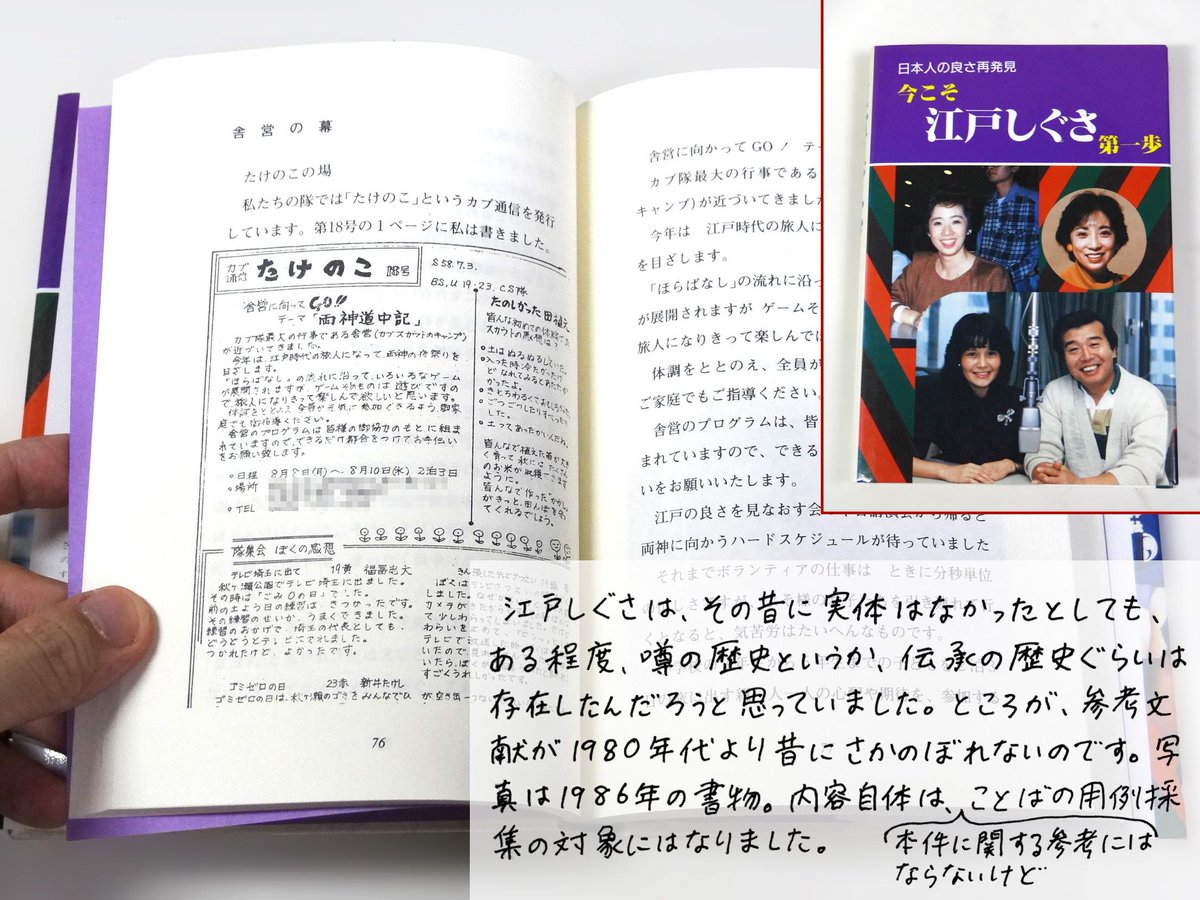 舎営の幕
たけのこの場
私たちの隊では「たけのこ」というカブ通信を発行
しています。第18号の1ページに私は書きました。
カブ通信 たけのこ 18号
S58.7.3.
BS,U 19・23.CS隊
舎営に向って GO!!
テーマ「両神道中記」
カブ隊最大の行事である舎営(カブスカウトのキャンプ)
が近づいてきました。
今年は、江戸時代の旅人になって、両神の夜祭りを
目ざします。
「ほらばなし」の流れに沿って、いろいろなゲーム
が展開されますが、ゲームそのものは遊びですの
で、旅人になりきって楽しんで欲しいと思います。
体調をととのえ全員が元気に参加できるよう、御家
庭でも御指導ください。
舎営のプログラムは皆様の御協力のもとに組ま
れていますので、できるだけ都合をつけてお手伝い
をお願い致します。
○日程 8月8日(月)〜8月10日(水) 2泊3日
○場所
○TEL
たのしかった田植え
皆んな初めての体験で
スカウトの感想は?
隊集会 ぼくの感想
テレビ埼玉に出て 19黄
秋ヶ瀬公園でテレビ埼玉に出ました。
その時は「ごみ0の日」でした。
前の土よう日の練習は、きつかったです。
その練習のせいか、うまくできました。
練習のおかげで、埼玉の代表としても、
どうどうとテレビにでれました。
つかれたけど、よかったです。
ゴミゼロの日 23赤 新井たけし
ゴミゼロの日は、秋ヶ瀬のゴミをみんなでひ
76
舎営に向かってGO! テー
カブ隊最大の行事である
キャンプ)が近づいてきました
今年は 江戸時代の旅人に
を目ざします。
「ほらばなし」の流れに沿っ
が展開されますが ゲームそ
旅人になりきって楽しんでほ
体調をととのえ、全員が
ご家庭でもご指導ください。
舎営のプログラムは、皆
まれていますので、できる
いをお願いいたします。
江戸の良さを見なおす会
両神に向かうハードスケジュールが待っていました
それまでボランティアの仕事は ときに分秒単位
くとなると、気苦労はたいへんなものです。
日本人の良さ再発見
今こそ
江戸しぐさ
第一歩
江戸しぐさは、その昔に実体はなかったとしても、
ある程度、噂の歴史というか、伝承の歴史ぐらいは
存在したんだろうと思っていました。ところが、参考文
献が1980年代より昔にさかのぼれないのです。写
真は1986年の書物。内容自体は、ことばの用例採
集の対象にはなりました。
本件に関する参考には
ならないけど